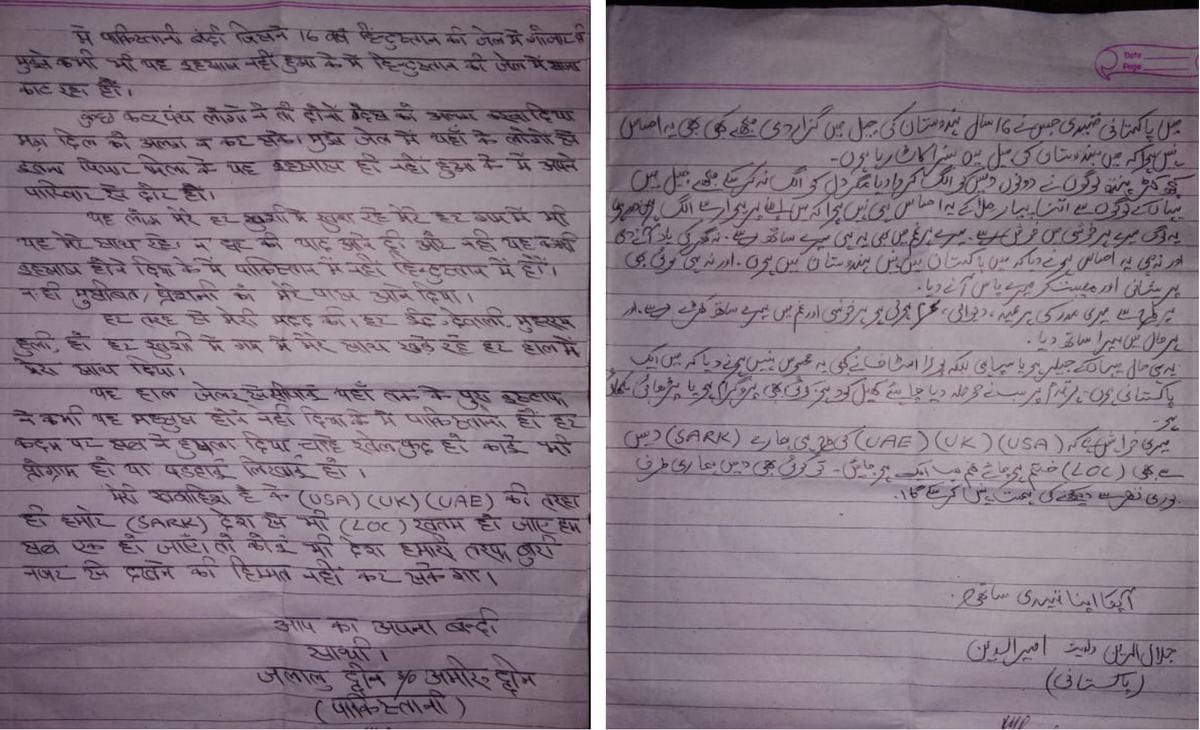 में पाकिस्तानी बंदी जिसने 16 वर्ष हिन्दुस्तान की जेल में गोजारे
मुझे कभी भी यह इहसास नहीं हुआ के में हिन्दुस्तान की जेल में सजा
काट रहा हों।
कुछ कटर पंथ लोगों ने तो दोनों देश को अलग करा दिया
मगर दिल को अलग न कर सके। मुझे जेल में यहाँ के लोगों से
इतना पियार मिला के यह इहसास ही नहीं हुआ के में अपने
परिवार से दोर हों।
यह लोग मेरे हर खुशी में खुश रहे मेरे हर गम में भी
यह मेरे साथ रहे। न घर की याद आने दी और नही यह कभी
इहसास होने दिया के में पाकिस्तान में नहीं हिन्दुस्तान में हों।
नही मुसीबत, प्रेशानी को मेरे पास आने दिया।
हर तरह से मेरी मदद की। हर ईद, देवाली, मुहर्रम
हुली, हो हर खुशी में गम में मेरे साथ खड़े रहे हर हाल में
मेरा साथ दिया।
यह हाल जेलर से सीपाई यहाँ तक के पुरा इस्टाफ
ने कभी यह महसुस होने नहीं दिया के में पाकिस्तानी हों हर
कदम पर सब ने हुसला दिया चाहे खेलकुद हो कोई भी
प्रोग्राम हो या पडहाई लिखाई हो।
मेरी खवाहिश है के (USA) (UK) (UAE) की तरहा
ही हमारे (SARK) देश से भी (LOC) खतम हो जाए हम
सब एक हो जाएं। तो कोई भी देश हमारी तरफ बुरी
नजर से देखने की हिम्मत नहीं कर सके गा।
आप का अपना बन्दी
साथी।
जलालु द्दीन s/o अमीरु द्दीन
(पाकिस्तानी)
Date
Page
میں پاکستانی قیدی جس نے 16 سال ہندوستان کی جیل میں گزار دی مجھے کبھی بھی یہ احساس
نہیں ہوا کہ میں ہندوستان کی جیل میں سزا کاٹ رہا ہوں۔
کچھ کٹر پنتھ لوگوں نے دونوں دیس کو الگ کروا دیا مگر دل کو الگ نہ کر سکے۔ مجھے جیل میں
یہاں کے لوگوں سے اتنا پیار ملا کے یہ احساس ہی نہیں ہوا کہ میں اپنے پریوار سے الگ
یہ لوگ میرے ہر خوشی میں خوش رہے۔ میرے ہر غم میں بھی یہ میرے ساتھ رہے۔ نہ گھر کی یاد آنے دی
اور نہ ہی یہ احساس ہونے دیا کہ میں پاکستان میں نہیں ہندوستان میں ہوں۔ اور نہ ہی کوئی بھی
پریشانی اور مصیبت کو میرے پاس آنے دیا۔
ہر طرح سے میری مدد کی ہر عید، دیوالی، محرم ہولی ہو ہر خوشی اور غم میں میرے ساتھ کھڑے رہے۔ اور
ہر حال میں میرا ساتھ دیا۔
یہی حال یہاں کے جیلر ہو یا سپاہی بلکہ پورا اسٹاف نے کبھی یہ محسوس نہیں ہونے دیا کہ میں ایک
پاکستانی ہوں۔ ہر قدم پر سب نے حوصلہ دیا چاہے کھیل کود ہو، کوئی بھی پروگرام ہو یا پڑھائی لکھائی
ہو۔
میری خواہش ہے کہ (USA) (UK) (UAE) کی طرح ہی ہمارے (SARK) دیس
سے بھی (LOC) ختم ہو جائے ہم سب ایک ہو جائیں۔ تو کوئی بھی دیس ہماری طرف
بری نظر سے دیکھنے کی ہمت نہیں کر سکے گا۔
آپکا اپنا قیدی ساتھی۔
جلال الدین ولدیت امیر الدین
(پاکستانی)